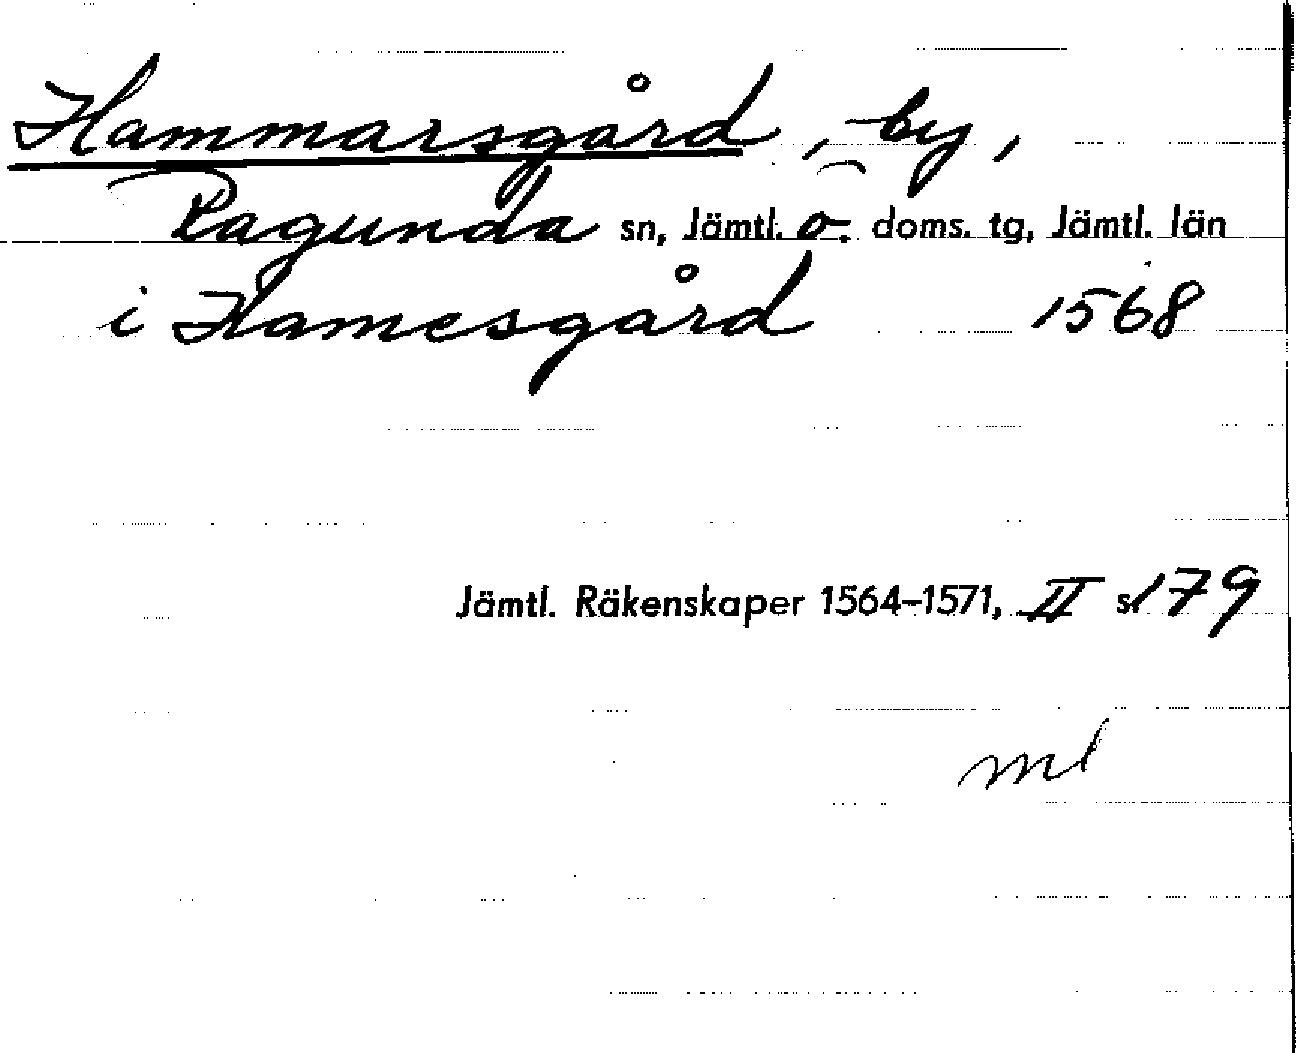 Hammarsgård, by,
Ragunda sn, Jämtl. ö. doms. tg, Jämtl. län
i Hamesgård 1568
Jämtl. Räkenskaper 1564-1571, II s. 179